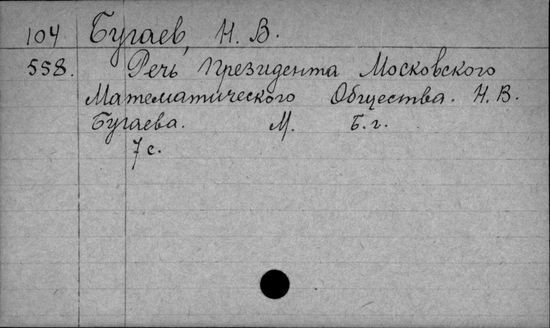 104 Бугаев, Н. В.
558. Речь Президента Московского
Математического Общества. Н. В.
Бугаева. М. Б. г.
7 с.